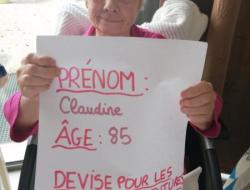 PRÉNOM :
Claudine
ÂGE : 85
DEVISE POUR LES